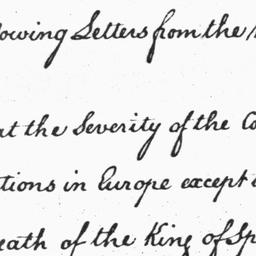 lowing Letters from the
at the Severity of the Co
tions in Europe except
eath of the King of Sp